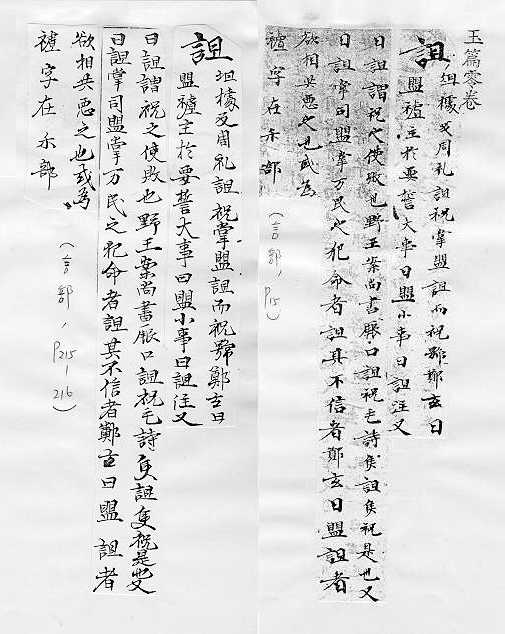 玉篇零卷
詛 俎據反周礼詛祝掌盟詛而祝號鄭玄曰
盟禮主於要誓大事曰盟小事曰詛注又
曰詛謂祝之使敗也野王案尚書厥口詛祝毛詩侯詛侯祝是也又
曰詛掌司盟掌万民之犯命者詛其不信者鄭玄曰盟詛者
欲相共惡之也或為
禮字在示部
(言部, P15)
詛 俎據反周礼詛祝掌盟詛而祝號鄭玄曰
盟禮主於要誓大事曰盟小事曰詛注又
曰詛謂祝之使敗也野王案尚書厥口詛祝毛詩侯詛侯祝是也又
曰詛掌司盟掌万民之犯命者詛其不信者鄭玄曰盟詛者
欲相共惡之也或為
禮字在示部
(言部, P215-216)